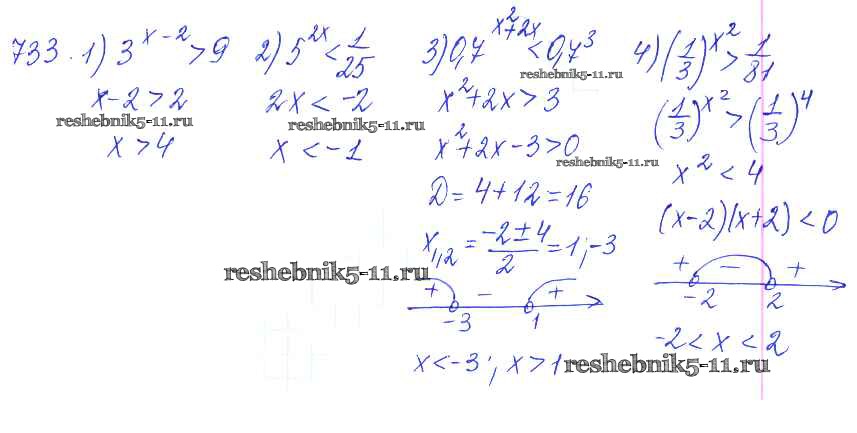 733. 1) 3^{x-2} > 9
x-2 > 2
reshebnik5-11.ru
x > 4
2) 5^{2x} < 1/25
2x < -2
reshebnik5-11.ru
x < -1
3) 0,7^{x^2+2x} < 0,7^3
reshebnik5-11.ru
x^2+2x > 3
x^2+2x-3 > 0
D = 4+12 = 16
x_{1,2} = (-2±4)/2 = 1; -3
reshebnik5-11.ru
+ - +
-3 1
x < -3; x > 1
4) (1/3)^{x^2} > 1/81
(1/3)^{x^2} > (1/3)^4
reshebnik5-11.ru
x^2 < 4
(x-2)(x+2) < 0
+ - +
-2 2
-2 < x < 2
reshebnik5-11.ru